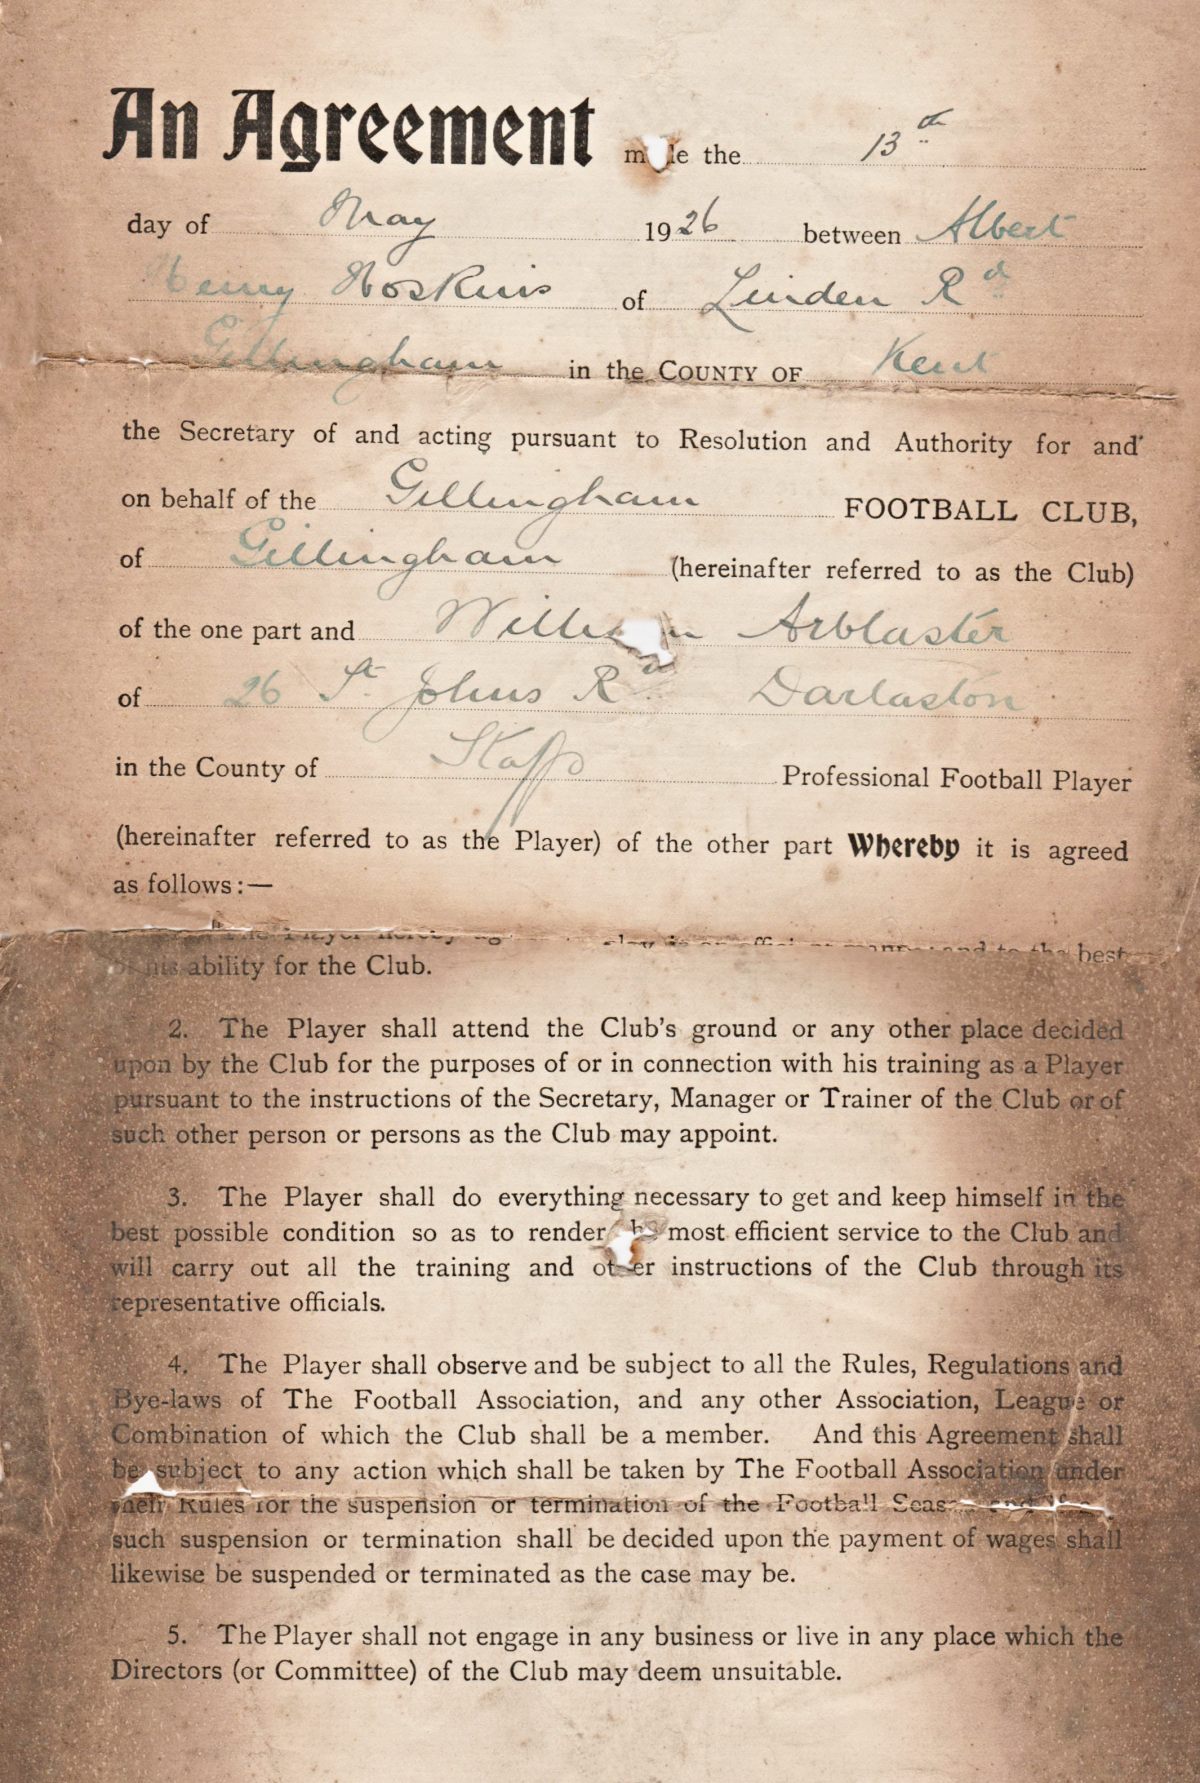 An Agreement made the 13th
day of May 1926 between Albert
Henry Hoskins of Linden Rd
Gillingham in the COUNTY OF Kent
the Secretary of and acting pursuant to Resolution and Authority for and
on behalf of the Gillingham FOOTBALL CLUB,
of Gillingham (hereinafter referred to as the Club)
of the one part and William Arblaster
of 26 St Johns Rd Darlaston
in the County of Staffs Professional Football Player
(hereinafter referred to as the Player) of the other part Whereby it is agreed
as follows:—
The Player hereby play in an efficient manner and to the best
of his ability for the Club.
2. The Player shall attend the Club's ground or any other place decided
upon by the Club for the purposes of or in connection with his training as a Player
pursuant to the instructions of the Secretary, Manager or Trainer of the Club or of
such other person or persons as the Club may appoint.
3. The Player shall do everything necessary to get and keep himself in the
best possible condition so as to render most efficient service to the Club and
will carry out all the training and other instructions of the Club through its
representative officials.
4. The Player shall observe and be subject to all the Rules, Regulations and
Bye-laws of The Football Association, and any other Association, League or
Combination of which the Club shall be a member. And this Agreement shall
be subject to any action which shall be taken by The Football Association under
their Rules for the suspension or termination of the Football Season and if
such suspension or termination shall be decided upon the payment of wages shall
likewise be suspended or terminated as the case may be.
5. The Player shall not engage in any business or live in any place which the
Directors (or Committee) of the Club may deem unsuitable.